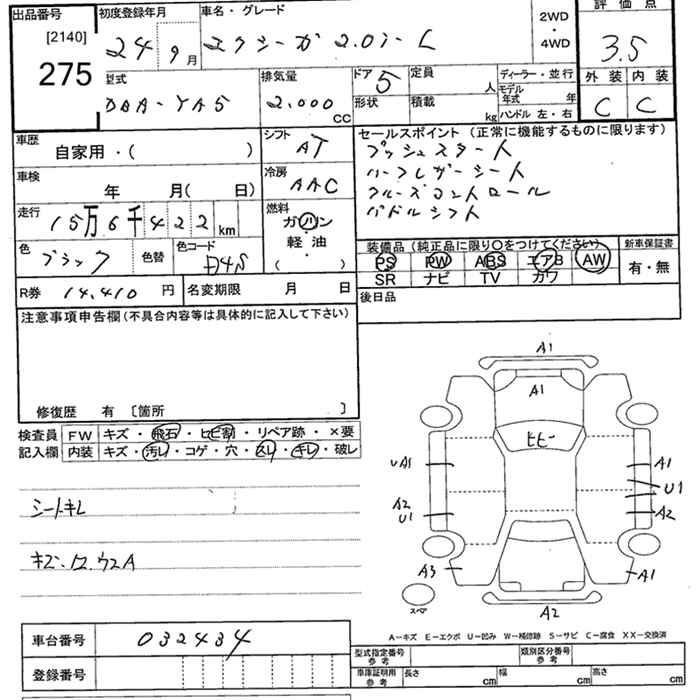 出品番号
[2140]
275
初度登録年月
24 9 月
車名・グレード
エクシーガ 2.0i-L
2WD
・
4WD
評価点
3.5
外装 内装
C C
型式
DBA-YA5
排気量
2.000 CC
ドア 5
定員 人
形状
積載 kg
ディーラー・並行
モデル年式 年
ハンドル 左・右
車歴
自家用・( )
シフト
AT
車検
年 月( 日)
冷房
AAC
走行
15万6千422 km
燃料
ガソリン
軽油
( )
色
ブラック
色替
色コード
D4S
R券 14,410 円
名変期限 月 日
セールスポイント(正常に機能するものに限ります)
プッシュスタート
ハーフレザーシート
クルーズコントロール
パドルシフト
装備品(純正品に限り○をつけてください)
新車保証書
PS PW ABS エアB AW
有・無
SR ナビ TV カワ
後日品
注意事項申告欄(不具合内容等は具体的に記入して下さい)
修復歴 有 〔箇所 〕
検査員 FW キズ・飛石・ヒビ割・リペア跡・×要
記入欄 内装 キズ・汚レ・コゲ・穴・スレ・キレ・破レ
シートキレ
キズ.エ.ウスA
A1
A1
ヒビー
UA1
A1
U1
A2
A2
U1
A3
A1
スペア
A2
A−キズ E−エクボ U−凹み W−補修跡 S−サビ C−腐食 XX−交換済
車台番号 032434
登録番号
型式指定番号
参考
類別区分番号
参考
車庫証明用
参考
長さ cm 幅 cm 高さ cm